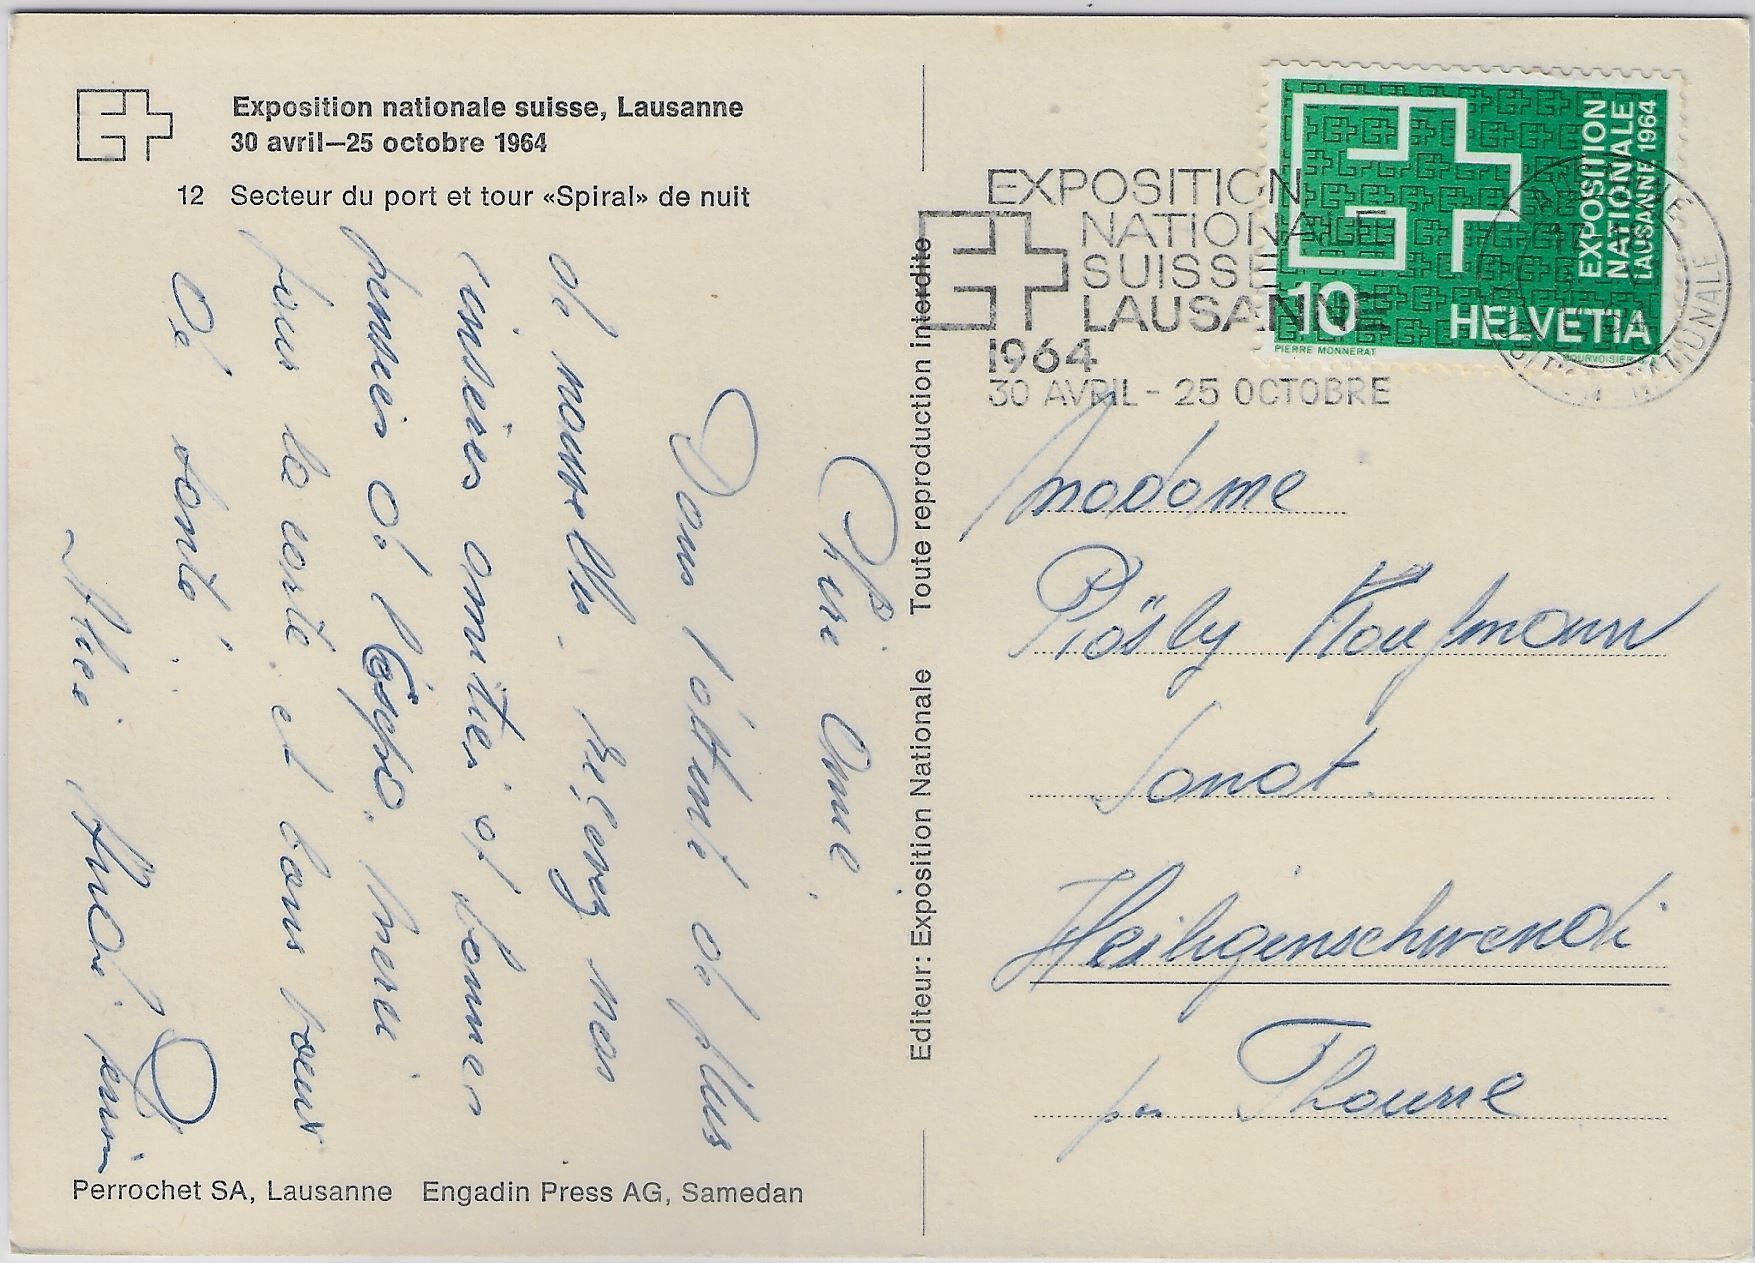 Exposition nationale suisse, Lausanne
30 avril–25 octobre 1964
12 Secteur du port et tour «Spiral» de nuit
Chère Amie,
Dans l'attente de plus
de nouvelles, recevez mes
sincères amitiés et bonnes
pensées de l'Expo. Merci
pour la carte et bons voeux
de santé.
Alice
Perrochet SA, Lausanne Engadin Press AG, Samedan
Editeur: Exposition Nationale Toute reproduction interdite
EXPOSITION
NATIONALE
SUISSE
LAUSANNE
1964
30 AVRIL - 25 OCTOBRE
EXPOSITION
NATIONALE
LAUSANNE 1964
10 HELVETIA
PIERRE MONNERAT COURVOISIER S.A.
LAUSANNE
EXPOSITION NATIONALE
Madame
Rösly Kaufmann
Sanat.
Heiligenschwendi
par Thoune